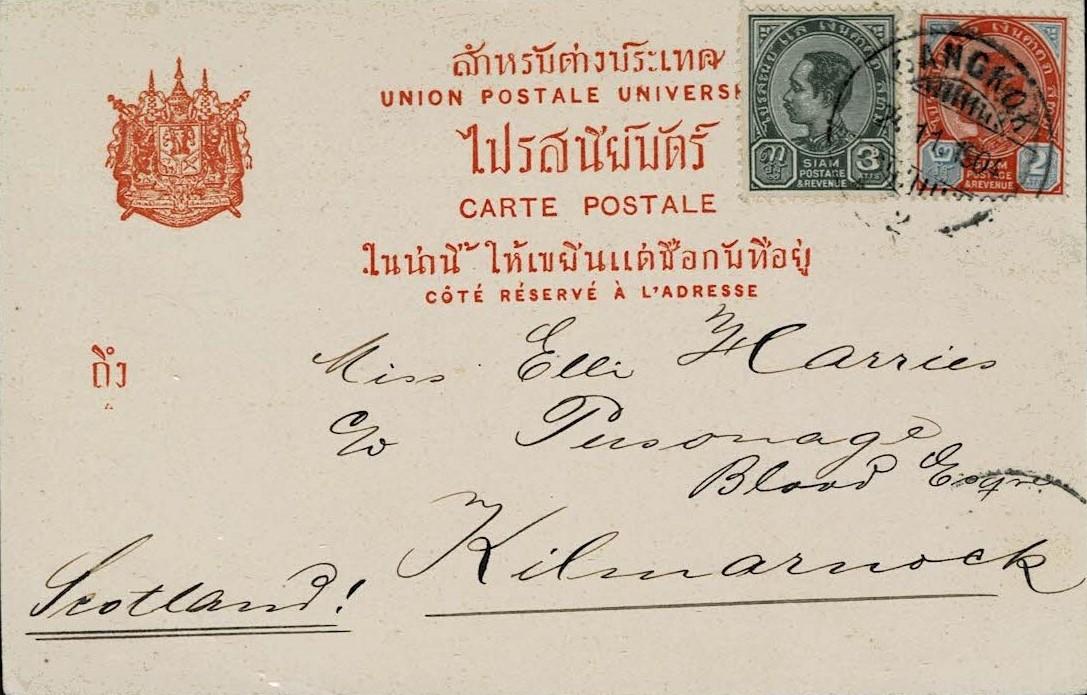 สำหรับต่างประเทศ
UNION POSTALE UNIVERSE
ไปรสนียบัตร์
CARTE POSTALE
ในน่านี้ ให้เขยีนแต่ชื่อกับที่อยู่
CÔTÉ RÉSERVÉ À L'ADRESSE
SIAM
POSTAGE
& REVENUE
3
ATTS
SIAM
POSTAGE
& REVENUE
2
BANGKOK
ถึง
Miss Elli Harries
c/o
Blood Esqre.
Kilmarnock
Scotland!